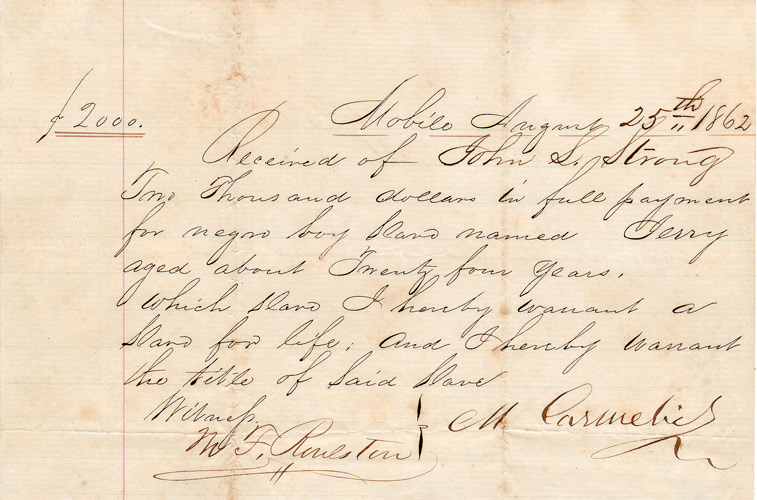 $2000. Mobile August 25th 1862
Received of John S. Strong
Two Thousand dollars in full payment
for negro boy Slave named Jerry
aged about Twenty four years.
which slave I hereby warrant a
Slave for life; And I hereby warrant
the title of Said Slave
Witness
M